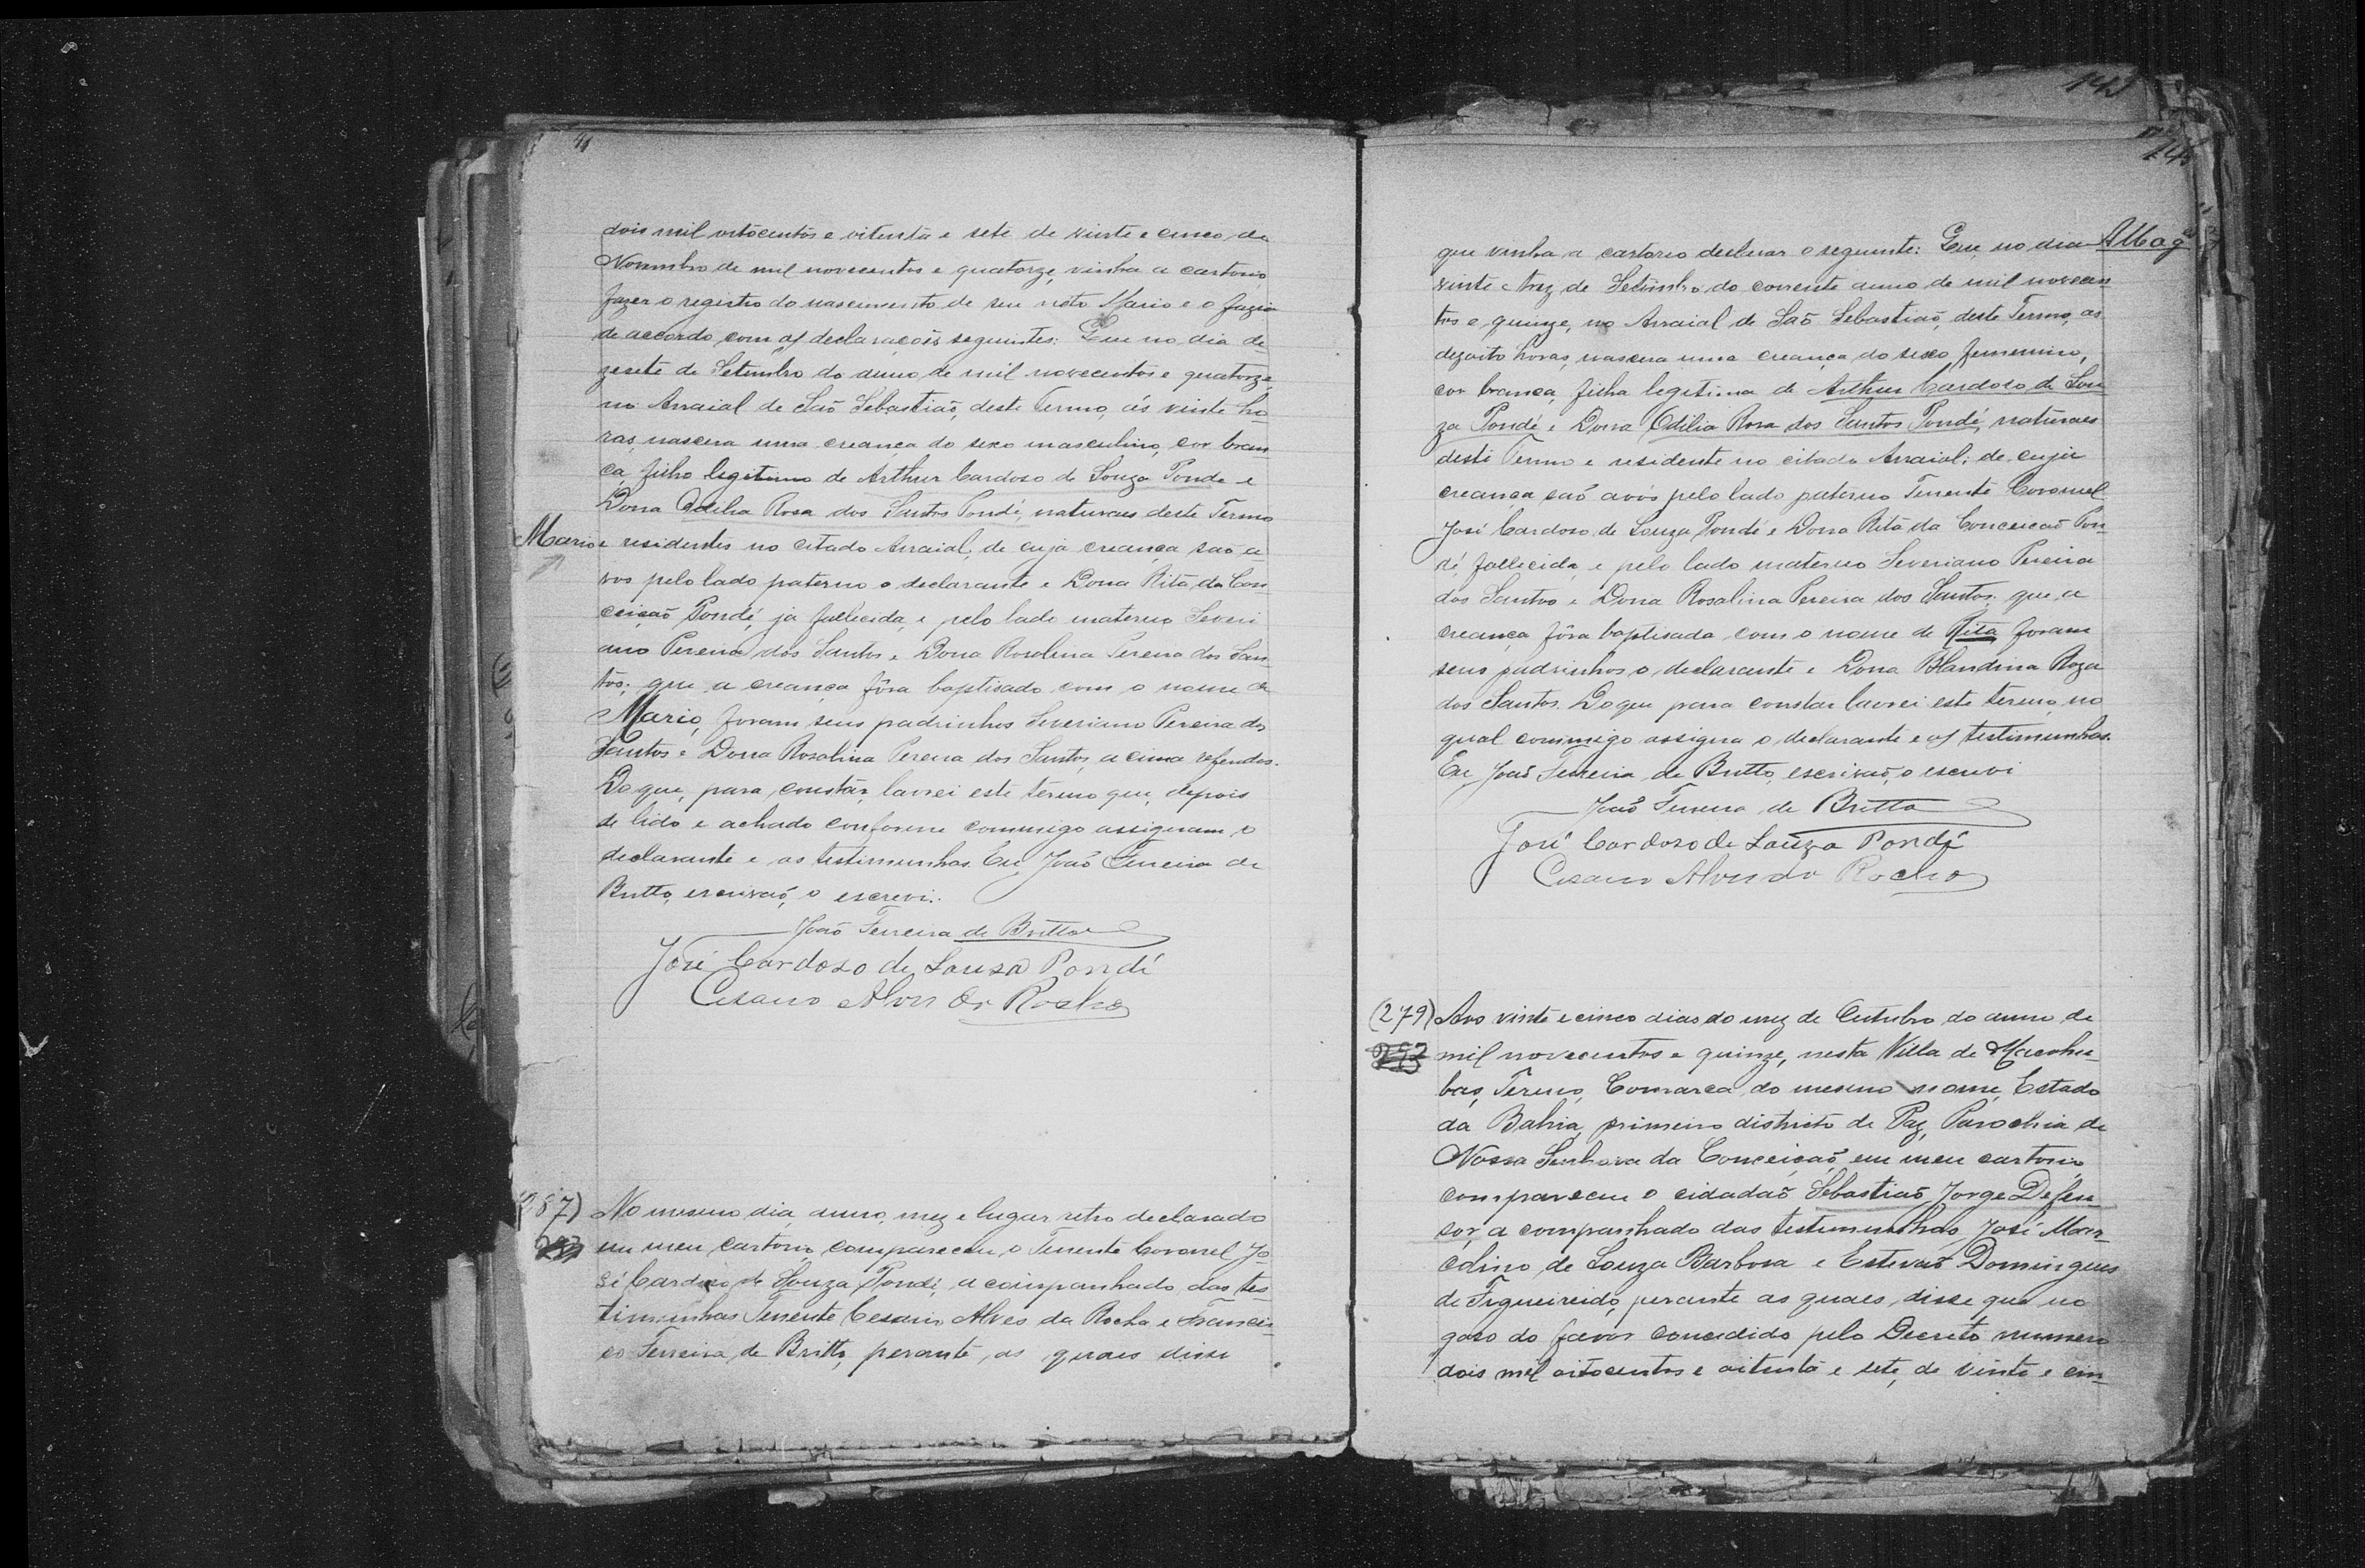 dois mil oitocentos e oitenta e sete de vinte e cinco de
Novembro de mil novecentos e quatorze, vinha a cartorio,
fazer o registro do nascimento de seu neto Mario e o fazia
de accordo com as declarações seguintes: Que no dia de-
zesete de Setembro do anno de mil novecentos e quatorze,
no Arraial de São Sebastião, deste Termo, ás vinte ho
ras, nascera uma creança do sexo masculino, cor bran
ca, filho legitimo de Arthur Cardoso de Souza Pondé e
Dona Odilia Rosa dos Santos Pondé, naturaes deste Termo
Mario e residentes no citado Arraial, de cuja creança são a-
vos pelo lado paterno o declarante e Dona Rita da Con-
ceição Pondé, já fallecida, e pelo lado materno Severi
ano Pereira dos Santos e Dona Rosalina Pereira dos San-
tos; que a creança fôra baptisado com o nome de
Mario, foram seus padrinhos Severiano Pereira dos
Santos e Dona Rosalina Pereira dos Santos, acima referidos.
Do que, para constar, lavrei este termo que, depois
de lido e achado conforme commigo assignam o
declarante e as testimunhas. Eu, João Ferreira de
Britto, escrivão, o escrevi.
João Ferreira de Britto
José Cardoso de Souza Pondé
Cesario Alves da Rocha
287) No mesmo dia, anno, mez e lugar retro declarado
em meu cartorio compareceu o Tenente Coronel Jo-
sé Cardoso de Souza Pondé, acompanhado das tes-
timunhas Tenente Cesario Alves da Rocha e Francis-
co Ferreira de Britto, perante as quaes disse
143
que vinha a cartorio declarar o seguinte: Que, no dia
vinte e trez de Setembro do corrente anno de mil novecen-
tos e quinze, no Arraial de São Sebastião, deste Termo, as
dezoito horas, nascera uma creança do sexo femenino,
cor branca, filha legitima de Arthur Cardoso de Sou-
za Pondé e Dona Odilia Rosa dos Santos Pondé, naturaes
deste Termo e residente no citado Arraial; de cuja
creança são avós pelo lado paterno Tenente Coronel
José Cardoso de Souza Pondé e Dona Rita da Conceição Pon-
dé, fallecida, e pelo lado materno Severiano Pereira
dos Santos e Dona Rosalina Pereira dos Santos; que a
creança fôra baptisada com o nome de Rita foram
seus padrinhos o declarante e Dona Blandina Roza
dos Santos. Do que para constar lavrei este termo, no
qual commigo assigna o declarante e as testimunhas.
Eu João Ferreira de Britto, escrivão, o escrevi
João Ferreira de Britto
José Cardoso de Souza Pondé
Cesario Alves da Rocha
(279) Aos vinte e cinco dias do mez de Outubro do anno de
mil novecentos e quinze, nesta Villa de Macahu-
bas, Termo, Comarca do mesmo nome, Estado
da Bahia, primeiro districto de Paz, Parochia de
Nossa Senhora da Conceição, em meu cartorio,
compareceu o cidadão Sebastião Jorge Defen-
sor, acompanhado das testimunhas José Mar-
colino de Souza Barbosa e Estevão Domingues
de Figueireido, perante as quaes, disse que no
goso do favor concedido pelo Decreto numero
dois mil oitocentos e oitenta e sete, de vinte e cin-